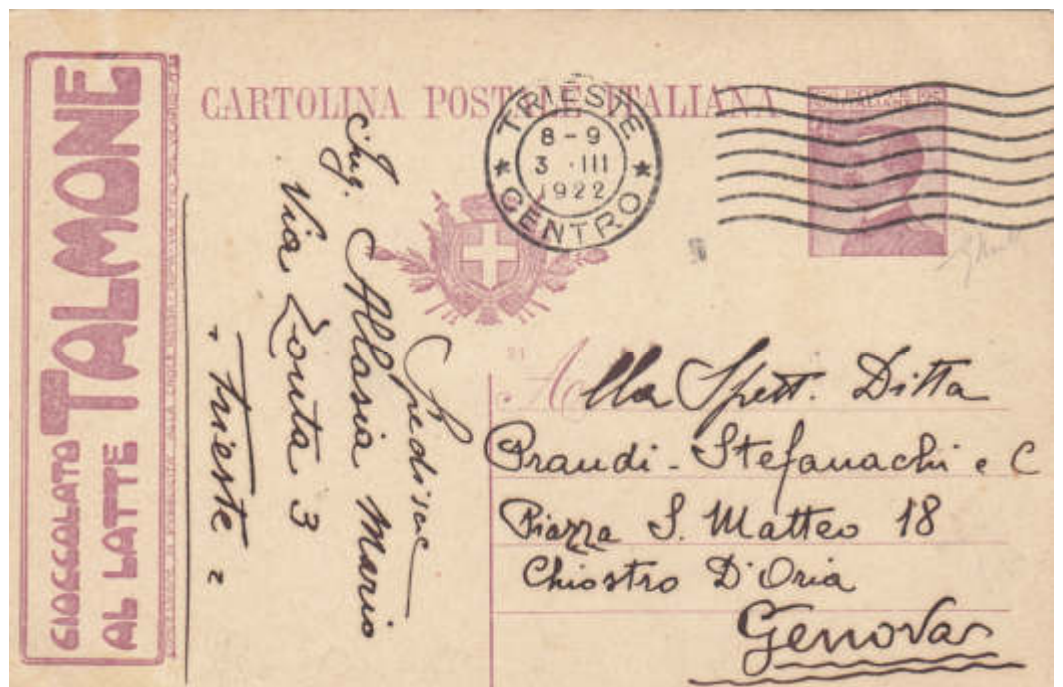 CIOCCOLATO
AL LATTE
TALMONE
CARTOLINA POSTALE ITALIANA
TRIESTE
8-9
3 · III
1922
CENTRO
Spedisce
Ing. Allasia Mario
Via Zonta 3
Trieste
Alla Spett. Ditta
Prandi - Stefanachi e C
Piazza S. Matteo 18
Chiostro D'Oria
Genova